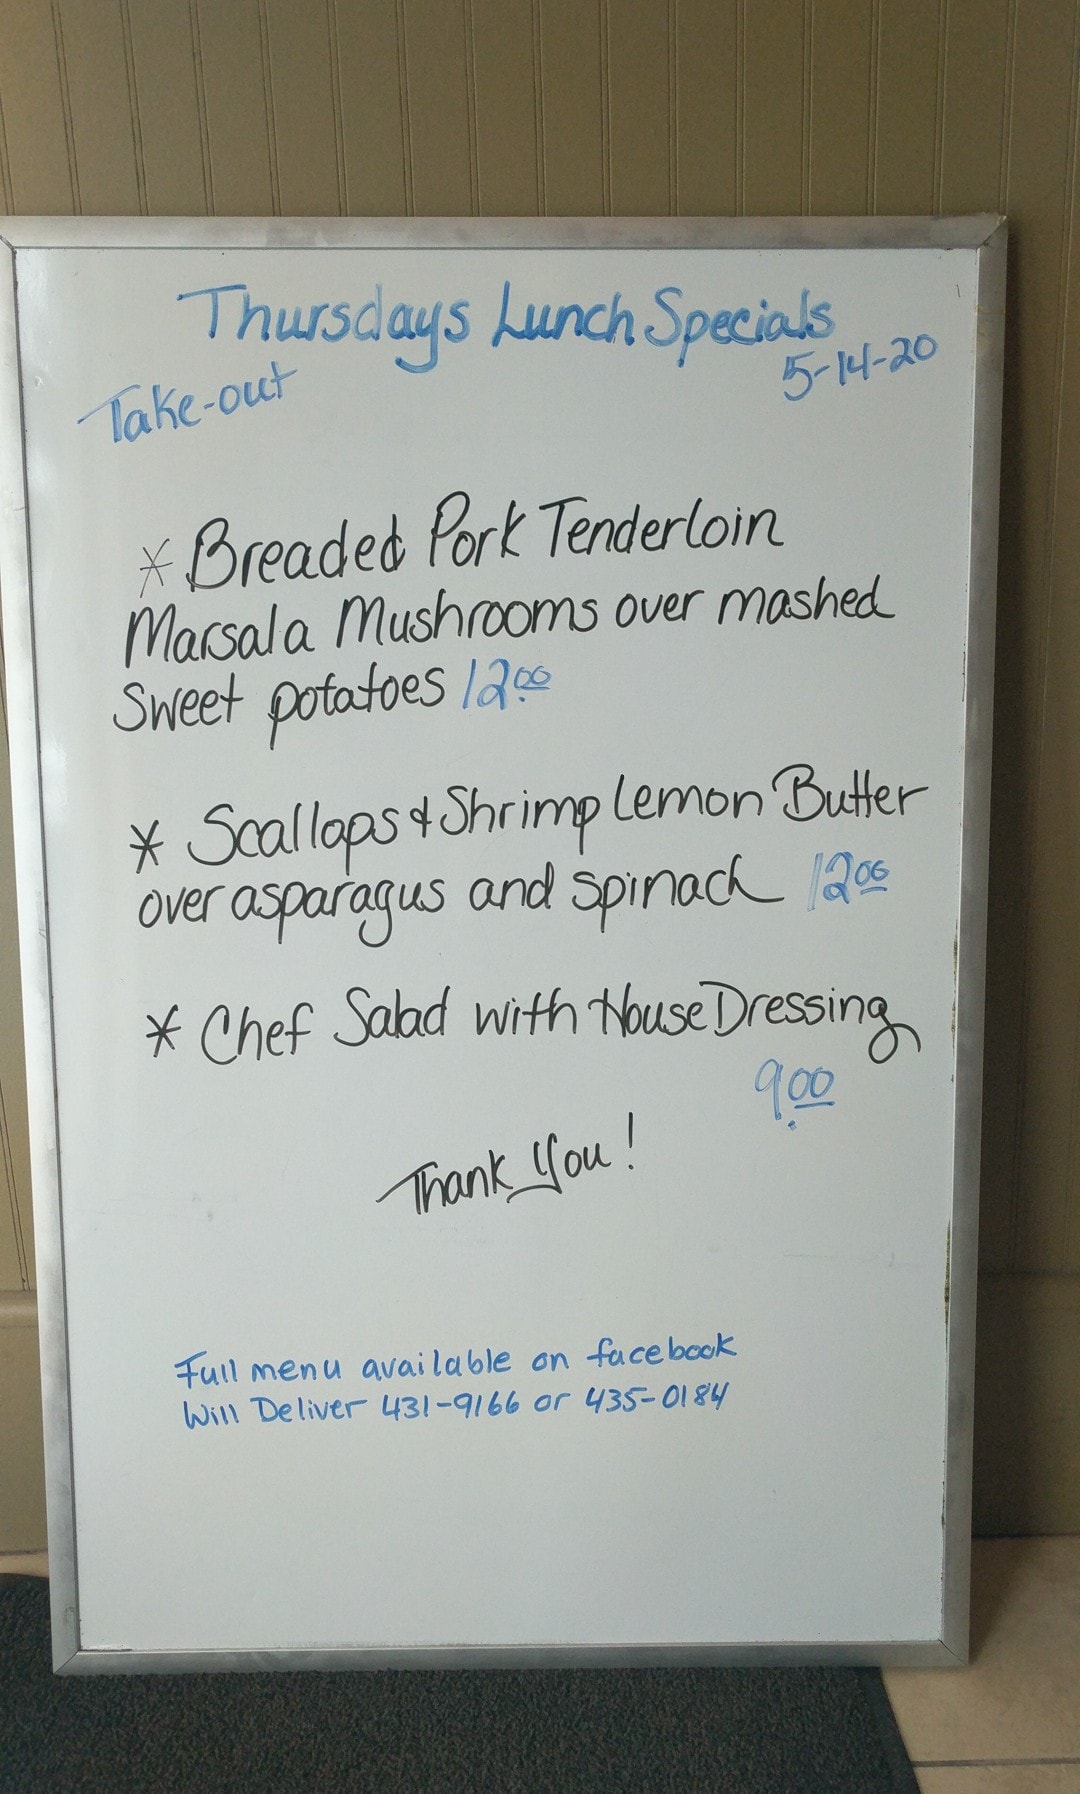 Thursdays Lunch Specials
5-14-20
Take-out
* Breaded Pork Tenderloin
Marsala Mushrooms over mashed
Sweet potatoes 12.00
* Scallops & Shrimp Lemon Butter
over asparagus and spinach 12.00
* Chef Salad with House Dressing
9.00
Thank You!
Full menu available on facebook
Will Deliver 431-9166 or 435-0184